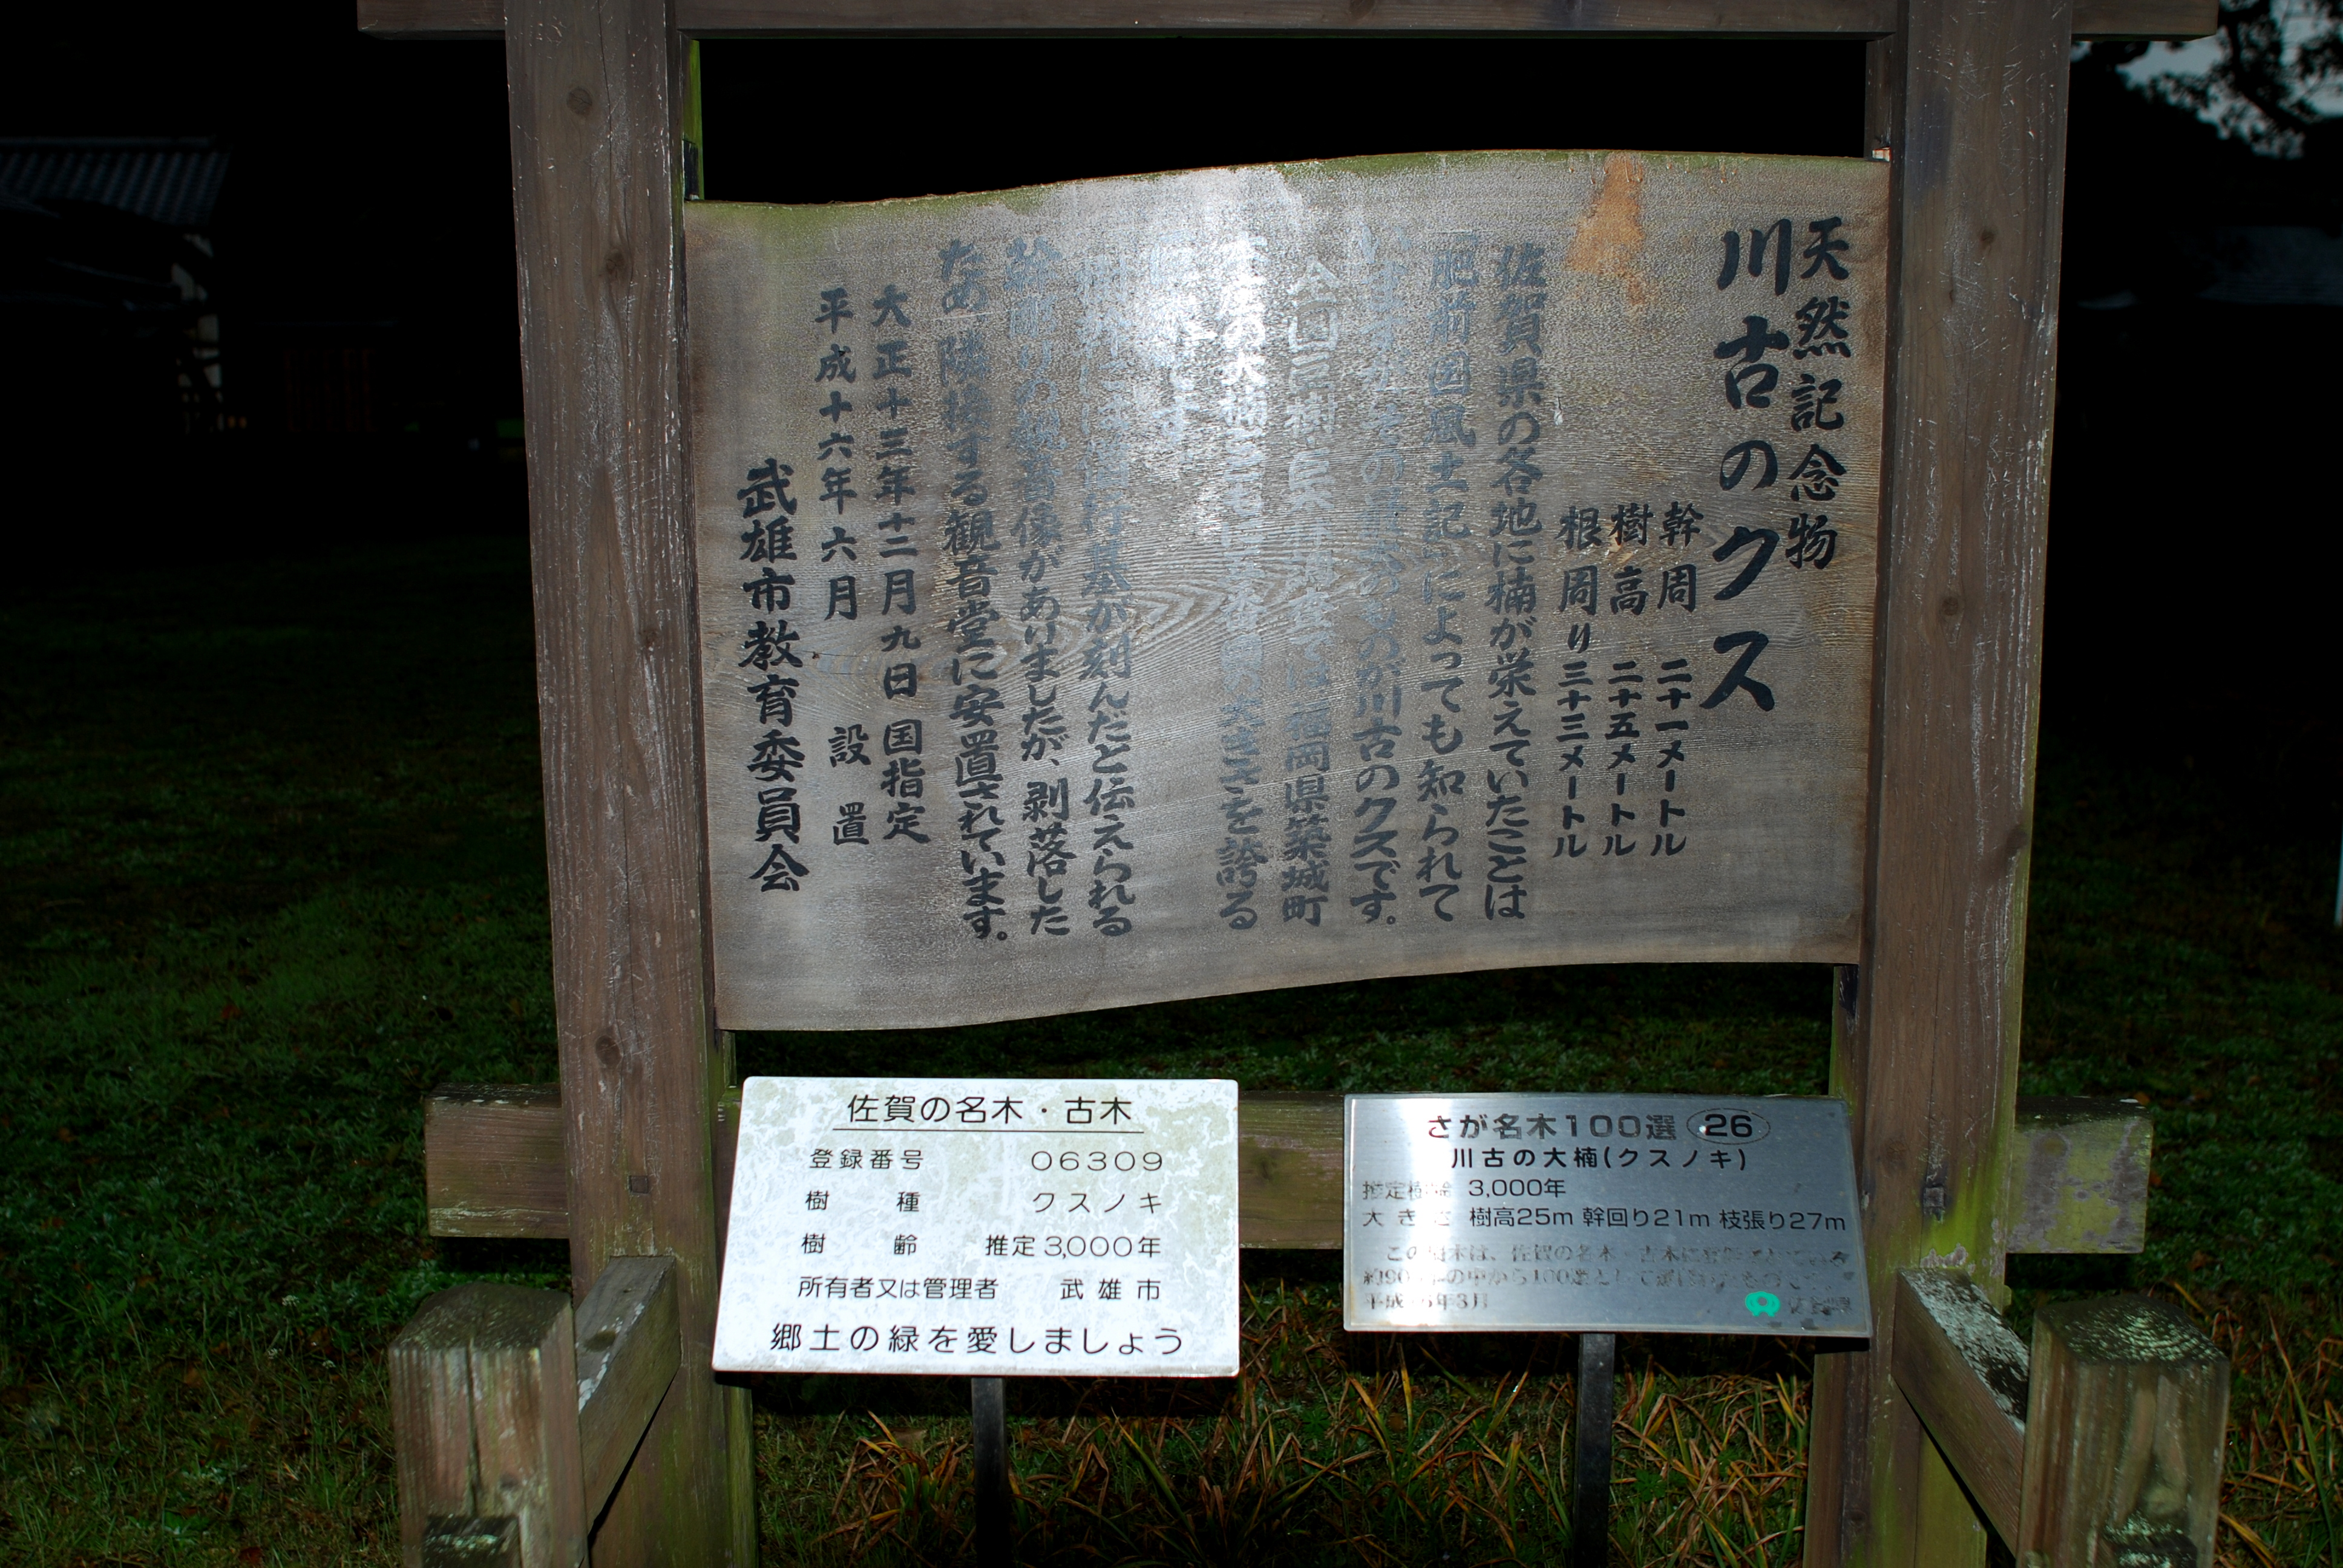 天然記念物
川古のクス
幹周 二十一メートル
樹高 二十五メートル
根周り三十三メートル
佐賀県の各地に楠が栄えていたことは
「肥前国風土記」によっても知られて
のものが川古のクスです。
全国巨樹・巨木 では福岡県築城町
の大楠 を誇る
行基が刻んだと伝えられる
幹彫りの観音像がありましたが、剥落した
ため隣接する観音堂に安置されています。
大正十三年十二月九日 国指定
平成十六年六月 設置
武雄市教育委員会
佐賀の名木・古木
登録番号 06309
樹種 クスノキ
樹齢 推定3,000年
所有者又は管理者 武雄市
郷土の緑を愛しましょう
さが名木100選 26
川古の大楠(クスノキ)
推定樹齢 3,000年
大きさ 樹高25m 幹回り21m 枝張り27m
この 木は、佐賀の名木・古木に
約90 の中から100選として
平成 年3月